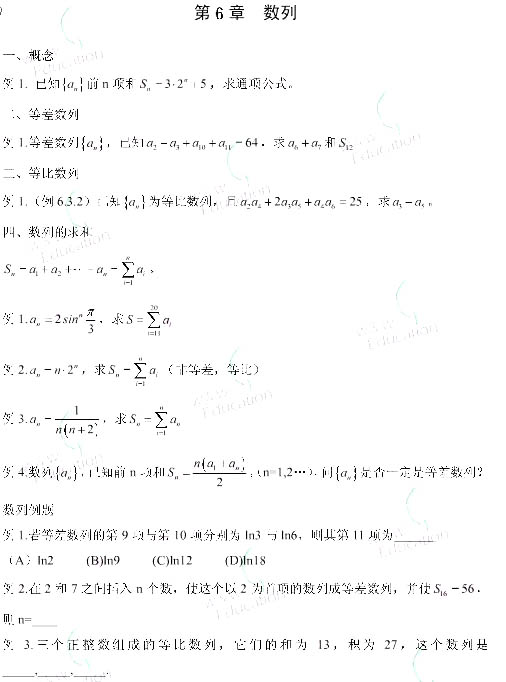 第 6 章 数列
一、概念
例 1. 已知{aₙ}前 n 项和 Sₙ = 3·2ⁿ + 5，求通项公式。
二、等差数列
例 1.等差数列{aₙ}，已知 a₂ + a₃ + a₁₀ + a₁₁ = 64，求 a₆ + a₇ 和 S₁₂
三、等比数列
例 1.（例 6.3.2）已知{aₙ}为等比数列，且 a₂a₄ + 2a₃a₅ + a₄a₆ = 25，求 a₃ + a₅。
四、数列的求和
Sₙ = a₁ + a₂ + ··· + aₙ = ∑_{i=1}^{n} aᵢ。
例 1. aₙ = 2 sinⁿ π/3，求 S = ∑_{i=11}^{20} aᵢ
例 2. aₙ = n·2ⁿ，求 Sₙ = ∑_{i=1}^{n} aᵢ（非等差，等比）
例 3. aₙ = 1/(n(n+2))，求 Sₙ = ∑_{i=1}^{n} aₙ
例 4.数列{aₙ}，已知前 n 项和 Sₙ = n(a₁ + aₙ)/2，(n=1,2···)，问{aₙ}是否一定是等差数列？
数列例题
例 1.若等差数列的第 9 项与第 10 项分别为 ln3 与 ln6，则其第 11 项为______
（A）ln2 (B)ln9 (C)ln12 (D)ln18
例 2.在 2 和 7 之间插入 n 个数，使这个以 2 为首项的数列成等差数列，并使 S₁₆ = 56，
则 n=____
例 3.三个正整数组成的等比数列，它们的和为 13，积为 27，这个数列是
_____,_____,_____.